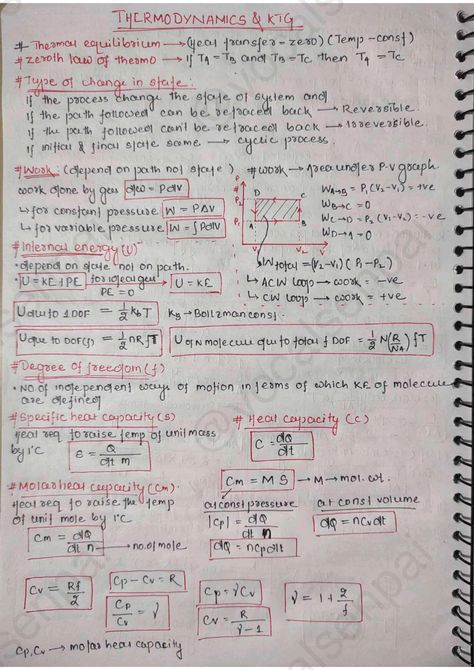 THERMODYNAMICS & KTG
# Thermal equilibrium → (Heat transfer = zero) (Temp - const)
# zeroth law of thermo → If TA = TB and TB = TC then TA = TC
# Type of change in state:
If the process change the state of system and
If the path followed can be retraced back → Reversible.
If the path followed can't be retraced back → Irreversible.
If initial & final state same → cyclic process.
# Work: (depend on path not state)
work done by gas dW = PdV
↳ for constant pressure W = PΔV
↳ for variable pressure W = ∫PdV
# work → Area under P-V graph
P
P2
P1
D
C
A
B
V1
V2
V
WA→B = P1(V2-V1) = +ve
WB→C = 0
WC→D = P2(V1-V2) = -ve
WD→A = 0
↳ Wtotal = (V2-V1)(P1-P2)
↳ ACW loop → work = -ve
↳ CW loop → work = +ve
# Internal energy (U)
• depend on state not on path.
• U = KE + PE for ideal gas PE = 0 → U = KE
U due to 1 DOF = 1/2 KBT
KB → Boltzman const.
U due to DOF(f) = 1/2 nRfT
U of N molecule due to total f DOF = 1/2 N(R/NA) fT
# Degree of freedom (f)
• NO. of independent ways of motion in terms of which KE of molecule
are defined
# Specific heat capacity (s)
Heat req to raise temp of unit mass
by 1°C
s = Q/dt m
# Heat capacity (C)
C = dQ/dt
Cm = MS → M → mol. wt.
# Molar heat capacity (Cm)
Heat req to raise the temp
of unit mole by 1°C
Cm = dQ/dt n → no. of mole
at const pressure
|Cp| = dQ/dt n
dQ = nCpdt
at const volume
dQ = nCvdt
Cv = Rf/2
Cp - Cv = R
Cp/Cv = γ
Cp = γCv
Cv = R/γ-1
γ = 1 + 2/f
Cp, Cv → molar heat capacity